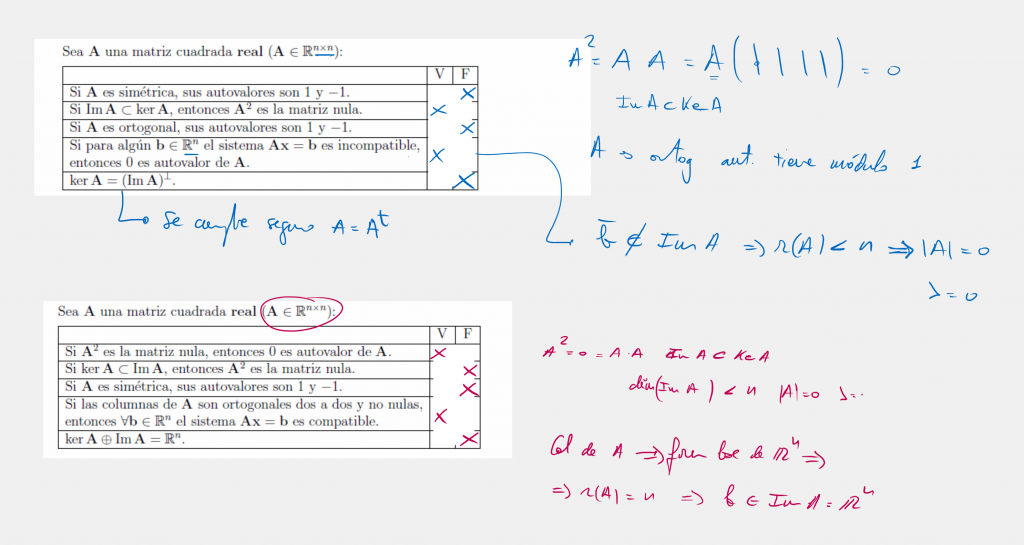 Sea A una matriz cuadrada real (A ∈ ℝⁿˣⁿ):
V F
Si A es simétrica, sus autovalores son 1 y −1. X
Si Im A ⊂ ker A, entonces A² es la matriz nula. X
Si A es ortogonal, sus autovalores son 1 y −1. X
Si para algún b ∈ ℝⁿ el sistema Ax = b es incompatible,
entonces 0 es autovalor de A. X
ker A = (Im A)⊥. X
Se cumple seguro A = Aᵗ
A² = A A = A ( | | | | ) = 0
Im A ⊂ Ke A
A es ortog aut. tiene módulo 1
b̄ ∉ Im A ⇒ r(A) < n ⇒ |A| = 0
λ = 0
Sea A una matriz cuadrada real (A ∈ ℝⁿˣⁿ):
V F
Si A² es la matriz nula, entonces 0 es autovalor de A. X
Si ker A ⊂ Im A, entonces A² es la matriz nula. X
Si A es simétrica, sus autovalores son 1 y −1. X
Si las columnas de A son ortogonales dos a dos y no nulas,
entonces ∀b ∈ ℝⁿ el sistema Ax = b es compatible. X
ker A ⊕ Im A = ℝⁿ. X
A² = 0 = A·A Im A ⊂ Ke A
dim(Im A) < n |A| = 0 λ = ..
Col de A ⇒ forman base de ℝⁿ ⇒
⇒ r(A) = n ⇒ b ∈ Im A = ℝⁿ